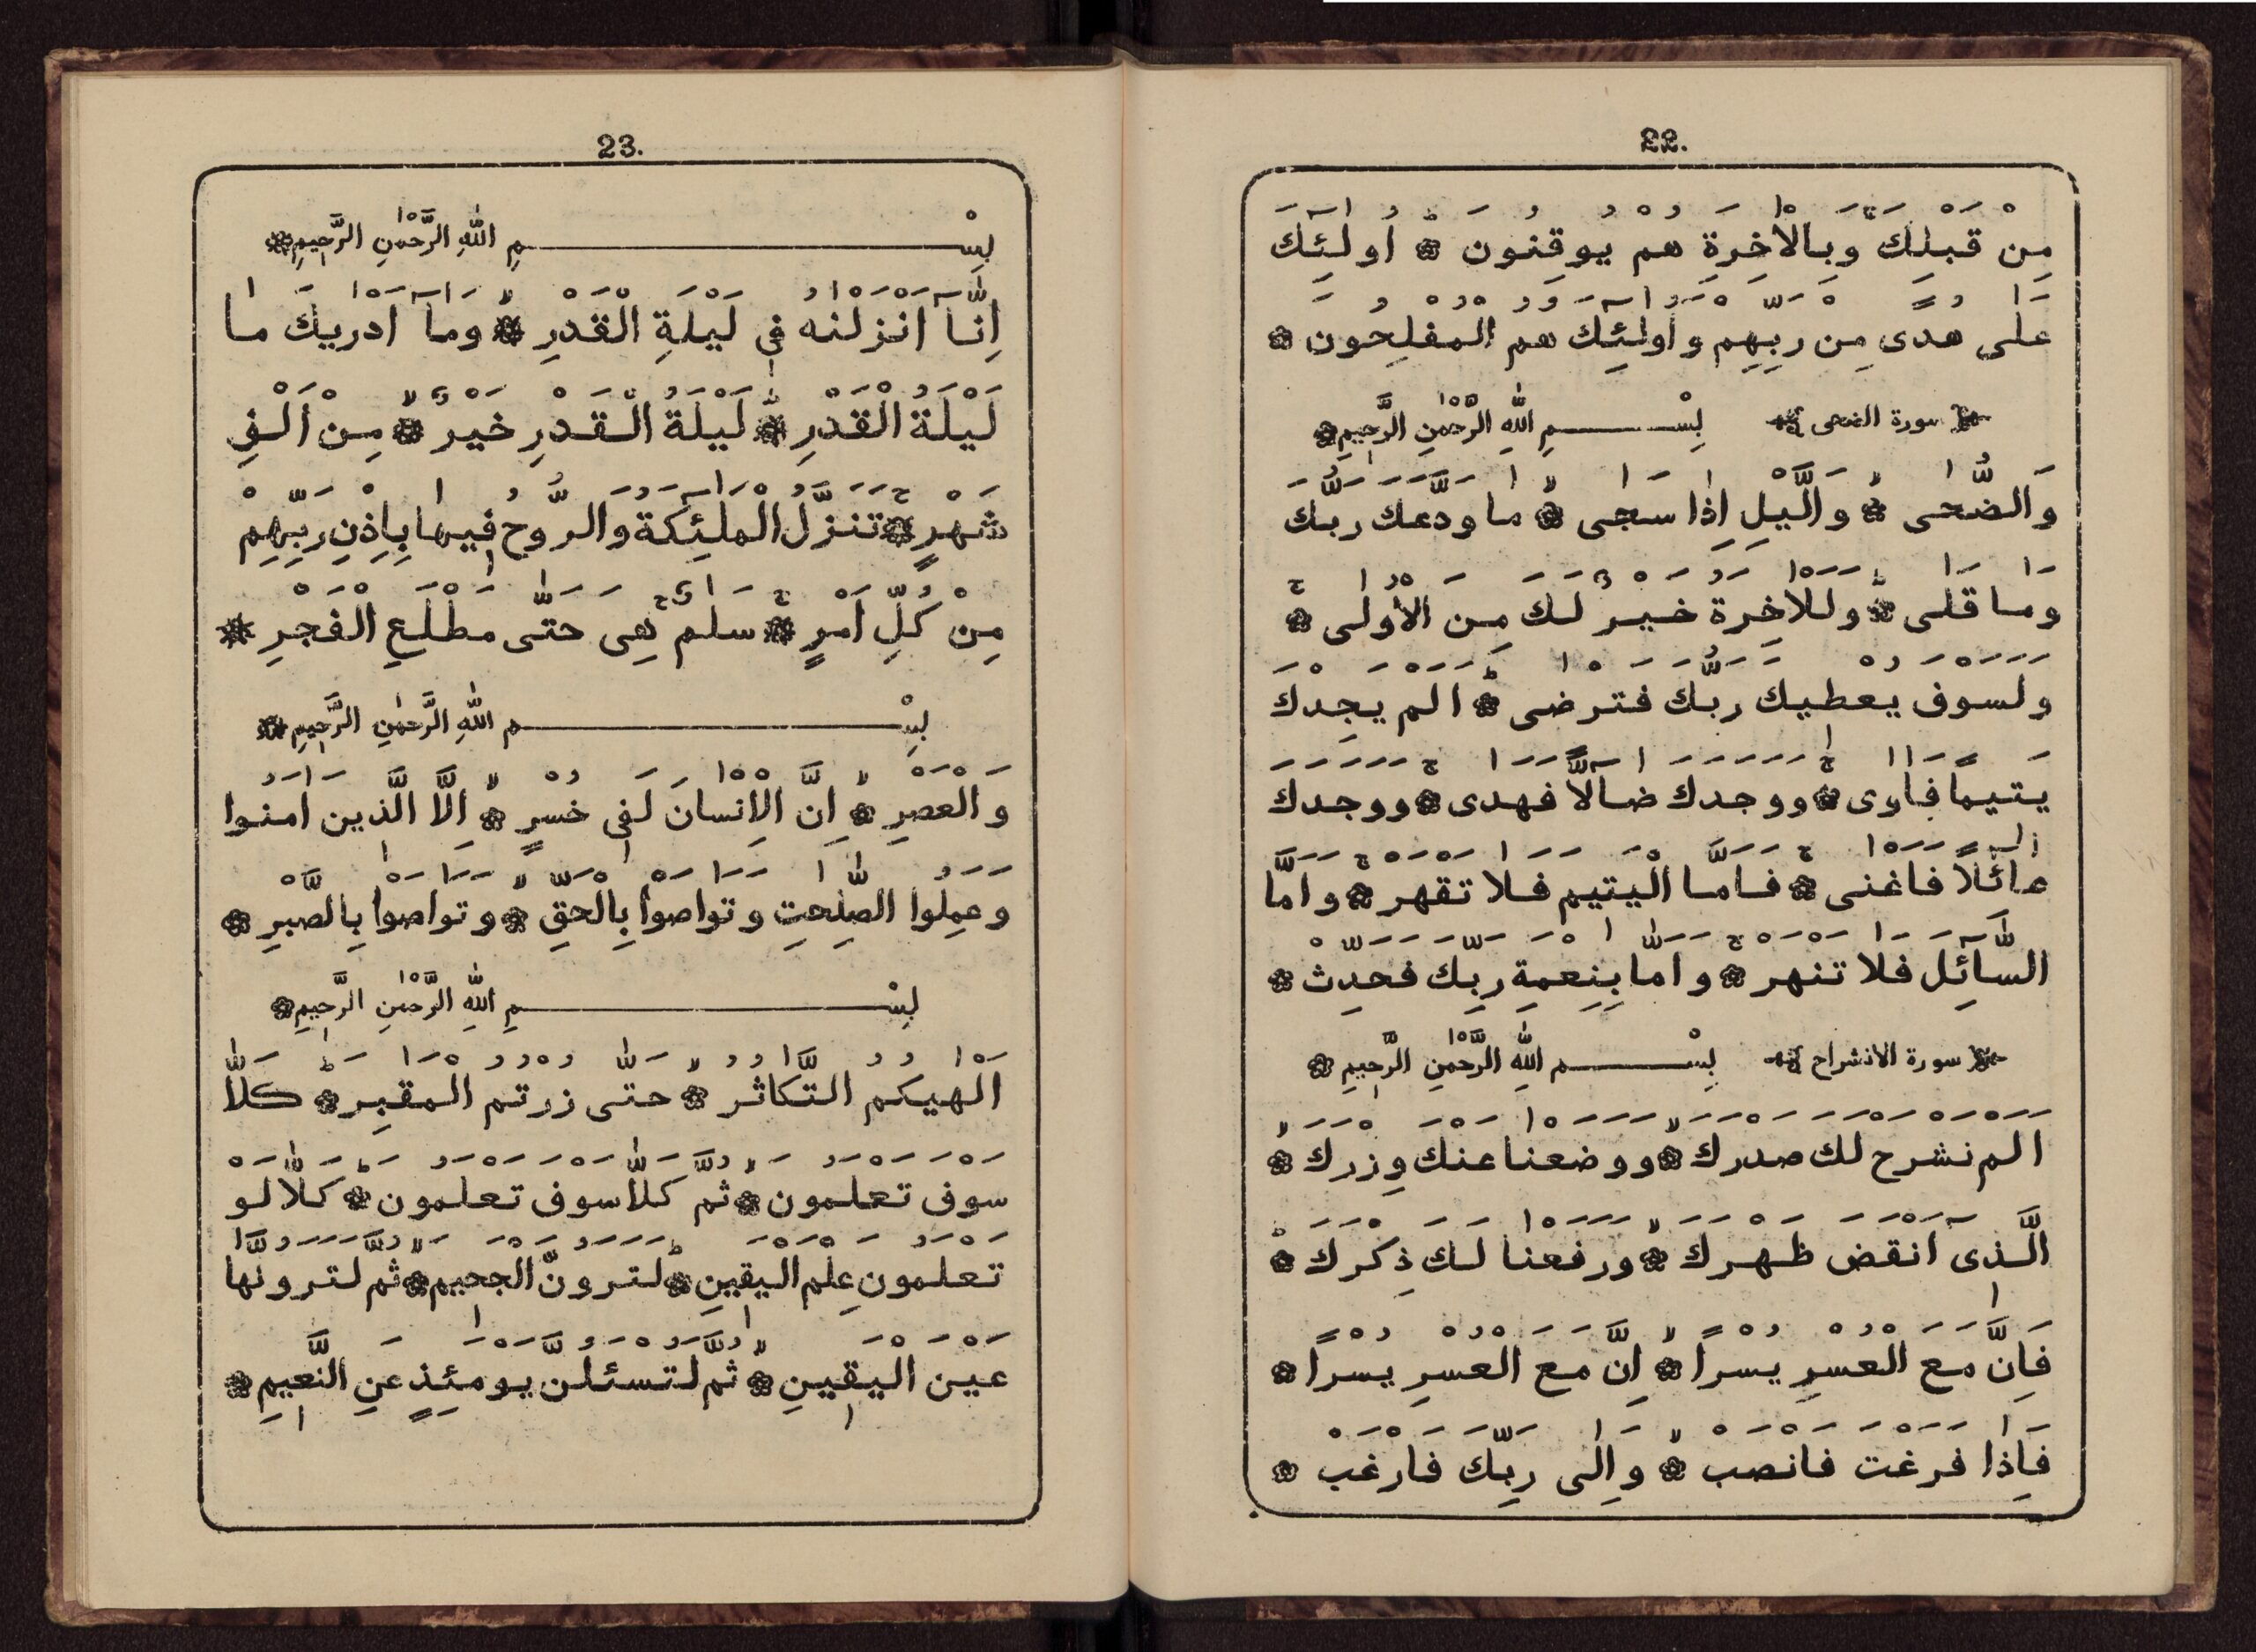 22.
مِنْ قَبْلِكَ وَبِالْاٰخِرَةِ هُمْ يُوقِنُونَ ۞ اُولٰٓئِكَ
عَلٰى هُدًى مِنْ رَبِّهِمْ وَاُولٰٓئِكَ هُمُ الْمُفْلِحُونَ ۞
سورة الضحى بِسْــــمِ اللّٰهِ الرَّحْمٰنِ الرَّحٖيمِ ۞
وَالضُّحٰى ۞ وَالَّيْلِ اِذَا سَجٰى ۞ مَا وَدَّعَكَ رَبُّكَ
وَمَا قَلٰى ۞ وَلَلْاٰخِرَةُ خَيْرٌ لَكَ مِنَ الْاُولٰى ۞
وَلَسَوْفَ يُعْطٖيكَ رَبُّكَ فَتَرْضٰى ۞ اَلَمْ يَجِدْكَ
يَتٖيمًا فَاٰوٰى ۞ وَوَجَدَكَ ضَٓالًّا فَهَدٰى ۞ وَوَجَدَكَ
عَٓائِلًا فَاَغْنٰى ۞ فَاَمَّا الْيَتٖيمَ فَلَا تَقْهَرْ ۞ وَاَمَّا
السَّٓائِلَ فَلَا تَنْهَرْ ۞ وَاَمَّا بِنِعْمَةِ رَبِّكَ فَحَدِّثْ ۞
سورة الانشراح بِسْــــمِ اللّٰهِ الرَّحْمٰنِ الرَّحٖيمِ ۞
اَلَمْ نَشْرَحْ لَكَ صَدْرَكَ ۞ وَوَضَعْنَا عَنْكَ وِزْرَكَ ۞
الَّذٖٓى اَنْقَضَ ظَهْرَكَ ۞ وَرَفَعْنَا لَكَ ذِكْرَكَ ۞
فَاِنَّ مَعَ الْعُسْرِ يُسْرًا ۞ اِنَّ مَعَ الْعُسْرِ يُسْرًا ۞
فَاِذَا فَرَغْتَ فَانْصَبْ ۞ وَاِلٰى رَبِّكَ فَارْغَبْ ۞
23.
بِسْــــمِ اللّٰهِ الرَّحْمٰنِ الرَّحٖيمِ ۞
اِنَّٓا اَنْزَلْنَاهُ فٖى لَيْلَةِ الْقَدْرِ ۞ وَمَٓا اَدْرٰيكَ مَا
لَيْلَةُ الْقَدْرِ ۞ لَيْلَةُ الْقَدْرِ خَيْرٌ ۞ مِنْ اَلْفِ
شَهْرٍ ۞ تَنَزَّلُ الْمَلٰٓئِكَةُ وَالرُّوحُ فٖيهَا بِاِذْنِ رَبِّهِمْ
مِنْ كُلِّ اَمْرٍ ۞ سَلٰمٌ هِىَ حَتّٰى مَطْلَعِ الْفَجْرِ ۞
بِسْــــمِ اللّٰهِ الرَّحْمٰنِ الرَّحٖيمِ ۞
وَالْعَصْرِ ۞ اِنَّ الْاِنْسَانَ لَفٖى خُسْرٍ ۞ اِلَّا الَّذٖينَ اٰمَنُوا
وَعَمِلُوا الصّٰلِحٰتِ وَتَوَاصَوْا بِالْحَقِّ ۞ وَتَوَاصَوْا بِالصَّبْرِ ۞
بِسْــــمِ اللّٰهِ الرَّحْمٰنِ الرَّحٖيمِ ۞
اَلْهٰيكُمُ التَّكَاثُرُ ۞ حَتّٰى زُرْتُمُ الْمَقٰبِرَ ۞ كَلَّا
سَوْفَ تَعْلَمُونَ ۞ ثُمَّ كَلَّا سَوْفَ تَعْلَمُونَ ۞ كَلَّا لَوْ
تَعْلَمُونَ عِلْمَ الْيَقٖينِ ۞ لَتَرَوُنَّ الْجَحٖيمَ ۞ ثُمَّ لَتَرَوُنَّهَا
عَيْنَ الْيَقٖينِ ۞ ثُمَّ لَتُسْئَلُنَّ يَوْمَئِذٍ عَنِ النَّعٖيمِ ۞